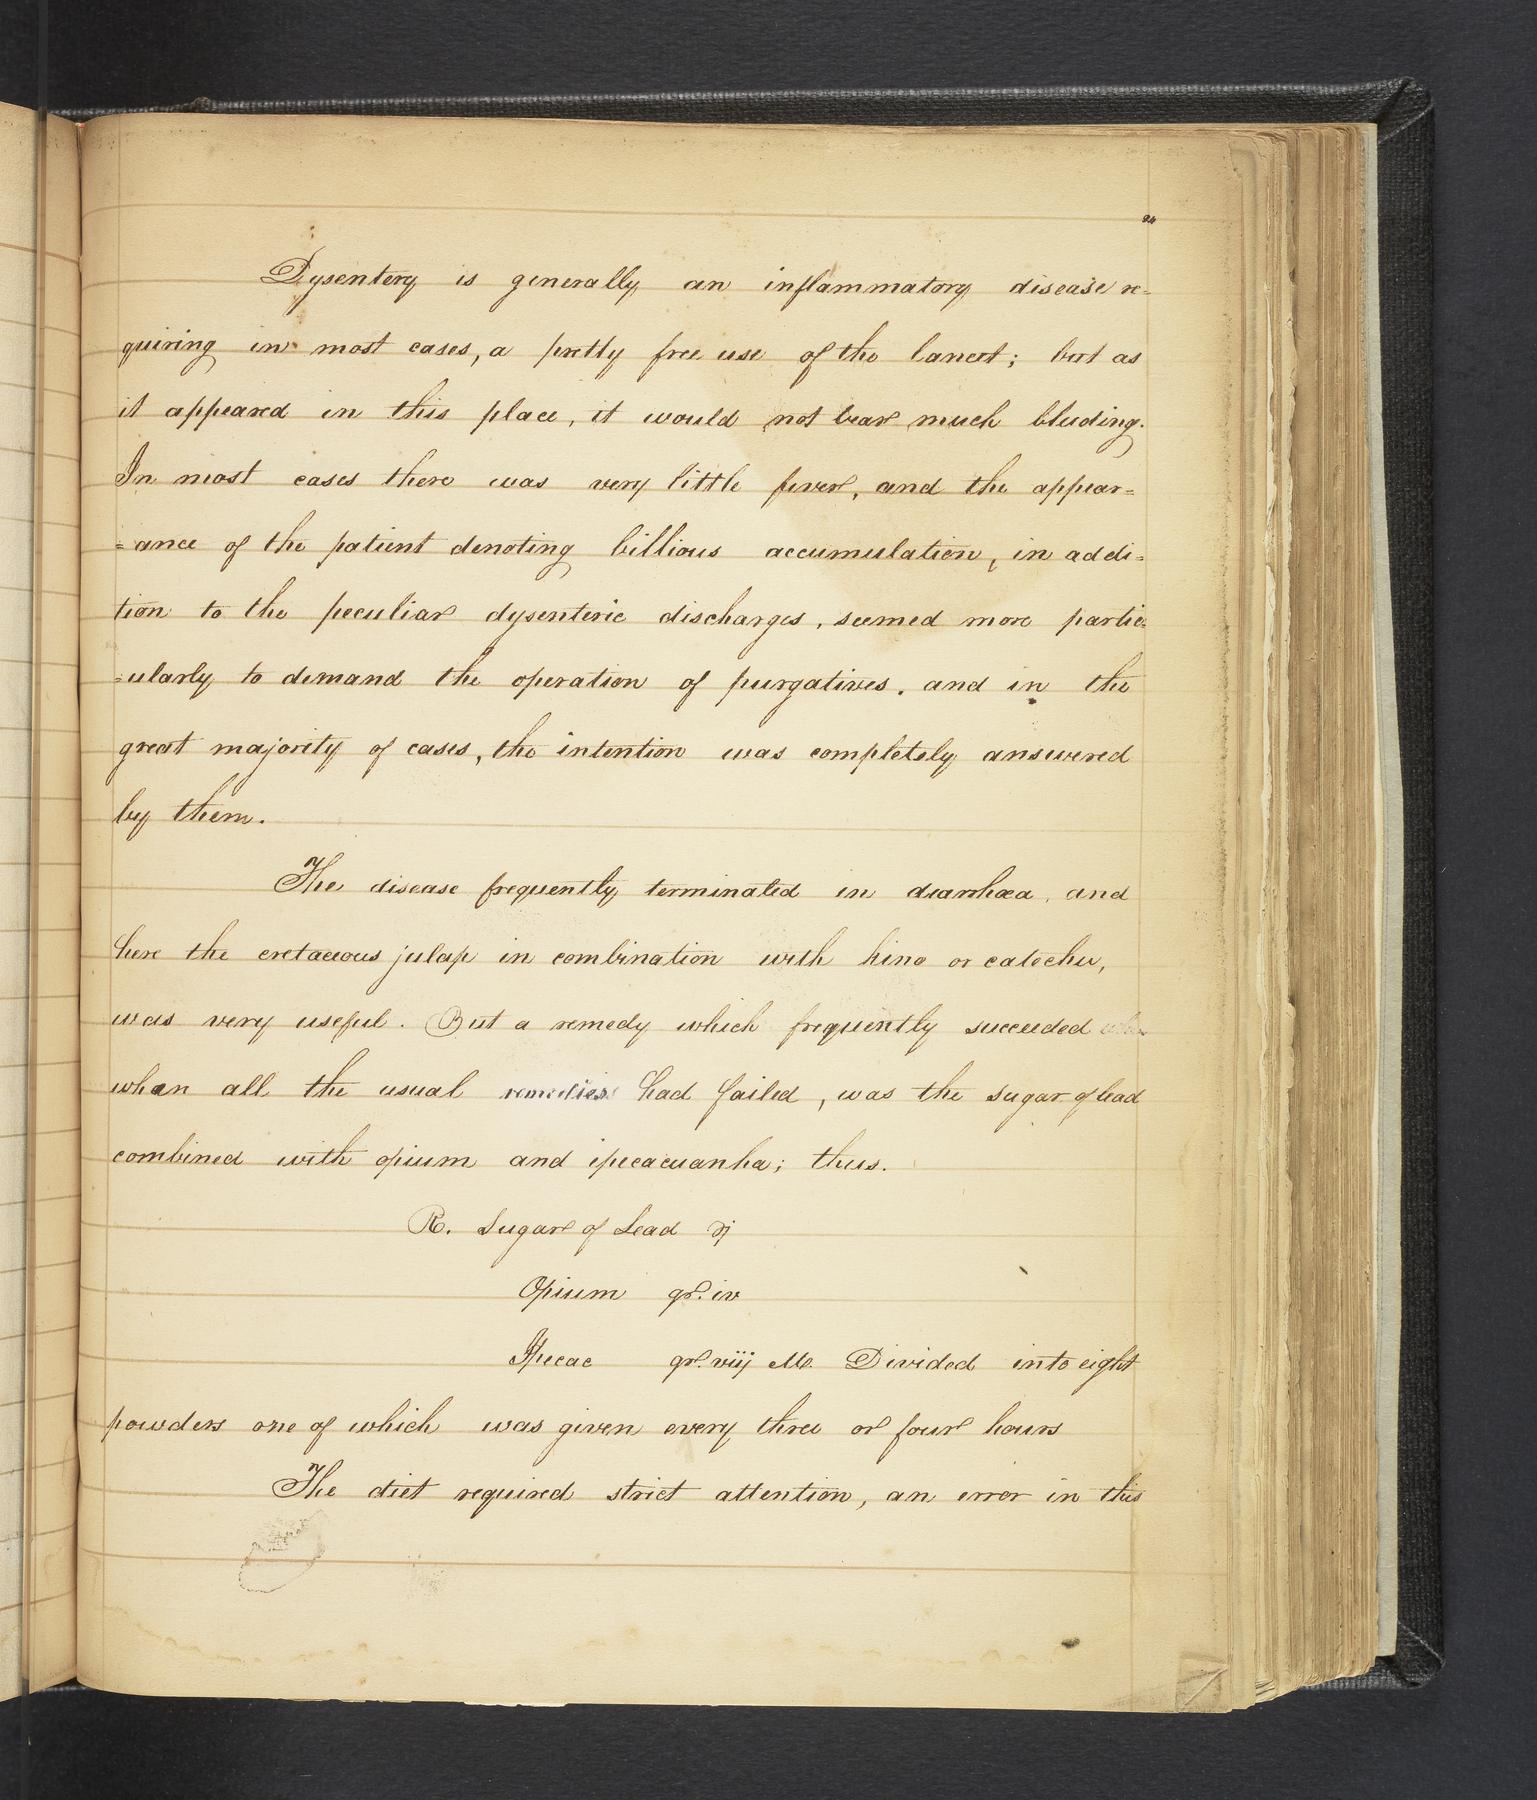 24
Dysentery is generally an inflammatory disease re-
quiring in most cases, a pretty free use of the lancet; but as
it appeared in this place, it would not bear much bleeding.
In most cases there was very little fever, and the appear=
=ance of the patient denoting billious accumulation, in addi=
tion to the peculiar dysenteric discharges, seemed more partic=
=ularly to demand the operation of purgatives, and in the
great majority of cases, the intention was completely answered
by them.
The disease frequently terminated in diarrhœa, and
here the cretaceous julap in combination with kino or catechu,
was very useful. But a remedy which frequently succeeded
when all the usual remedies had failed, was the sugar of lead
combined with opium and ipecacuanha; thus.
R. Sugar of Lead ℈j
Opium gr. iv
Ipecac gr. viij M. Divided into eight
powders one of which was given every three or four hours
The diet required strict attention, an error in this